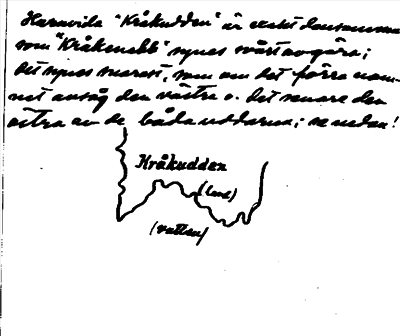 Huruvida "Kråkudden" är exakt densamma
som "Kråkenabb" synes svårt avgöra;
det synes snarast, som om det förra nam-
net avsåg den västra o. det senare den
östra av de båda uddarna; se nedan!
Kråkudden
(land)
(vatten)